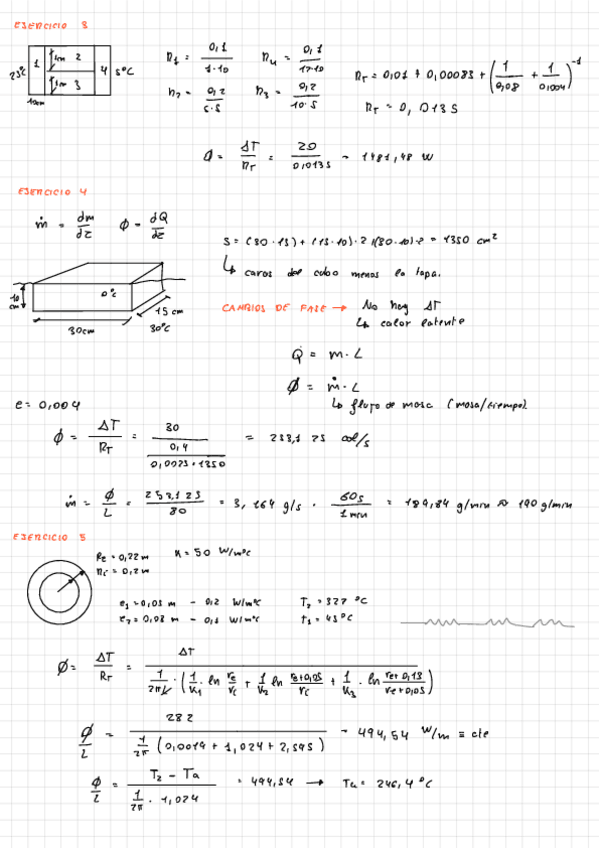 EJERCICIO 3
1 2 4 3
25°C 5°C
1m
1m
10cm
R1 = 0,1 / 1·10 R4 = 0,1 / 12·10
R2 = 0,2 / 5·5 R3 = 0,2 / 10·5
RT = 0,01 + 0,00083 + (1/0,08 + 1/0,004)^-1
RT = 0,0135
Φ = ΔT/RT = 20/0,0135 - 1481,48 W
EJERCICIO 4
ṁ = dm/dz Φ = dQ/dz
S = (30·15) + (15·10)·2 + (30·10)·2 = 1350 cm²
↳ caras del cubo menos la tapa.
10 cm 0°C 15 cm
30cm 30°C
CAMBIOS DE FASE → No hay ΔT
↳ calor latente
Q = m·L
Φ = ṁ·L
↳ flujo de masa (masa/tiempo).
e = 0,004
Φ = ΔT/RT = 30 / (0,4 / 0,0025·1350) = 253,125 cal/s
ṁ = Φ/L = 253,125/80 = 3,164 g/s · 60s/1min = 189,84 g/min ≈ 190 g/min
EJERCICIO 5
Re = 0,22 m K = 50 W/m°C
Ri = 0,2 m
e1 = 0,05 m - 0,2 W/m°C T2 = 327 °C
e2 = 0,08 m - 0,1 W/m°C T1 = 45°C
Φ = ΔT/RT = ΔT / (1/2πL · (1/K1 · ln re/ri + 1/K2 ln re+0,05/ri + 1/K3 · ln re+0,13/re+0,05))
Φ/L = 282 / (1/2π (0,0019 + 1,024 + 2,545)) - 494,54 W/m ≡ cte
Φ/L = T2 - Ta / (1/2π · 1,024) = 494,54 → Ta = 246,4 °C